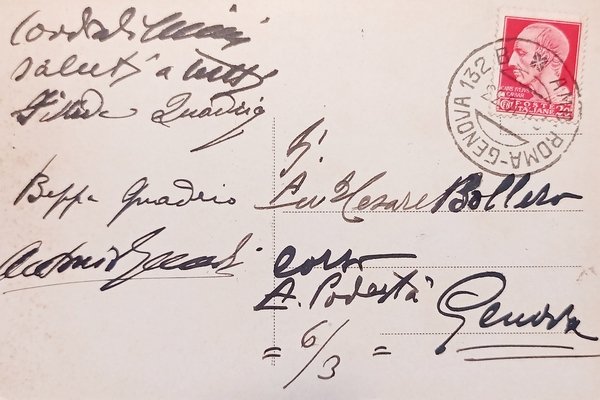 Cordialissimi
saluti a tutti
Quadrio
Beppe Quadrio
Antonio
Cesare Bollero
corso
A. Podestà
6/3
Genova
ROMA-GENOVA 132 B
POSTE
ITALIANE